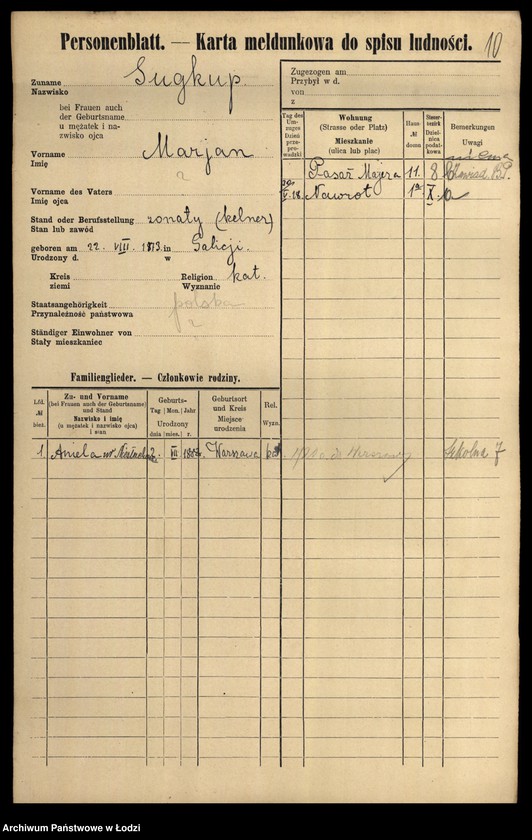 Personenblatt. — Karta meldunkowa do spisu ludności. 10
Zuname Sugkup.
Nazwisko
bei Frauen auch
der Geburtsname
u mężatek i na-
zwisko ojca
Vorname Marjan
Imię
Vorname des Vaters
Imię ojca
Stand oder Berufsstellung żonaty (kelner)
Stan lub zawód
geboren am 22. VIII. 1873 in Galicji.
Urodzony d. w
Kreis Religion kat.
ziemi Wyznanie
Staatsangehörigkeit polska
Przynależność państwowa
Ständiger Einwohner von
Stały mieszkaniec
Zugezogen am
Przybył w d.
von
z
Tag des Um-zuges Dzień prze-prowadzki
Wohnung
(Strasse oder Platz)
Mieszkanie
(ulica lub plac)
Haus № domu
Steuer-bezirk Dzielnica podatkowa
Bemerkungen
Uwagi
Pasaż Majera 11. 8
V. 18. Nawrot X.
Familienglieder. — Członkowie rodziny.
Lfd. № bież.
Zu- und Vorname
(bei Frauen auch der Geburtsname)
und Stand
Nazwisko i imię
(u mężatek i nazwisko ojca)
i stan
Geburts-
Tag Mon. Jahr
Urodzony
dnia mies. r.
Geburtsort
und Kreis
Miejsce
urodzenia
Rel.
Wyzn.
1 Aniela Warszawa kat. Szkolna 7
Archiwum Państwowe w Łodzi